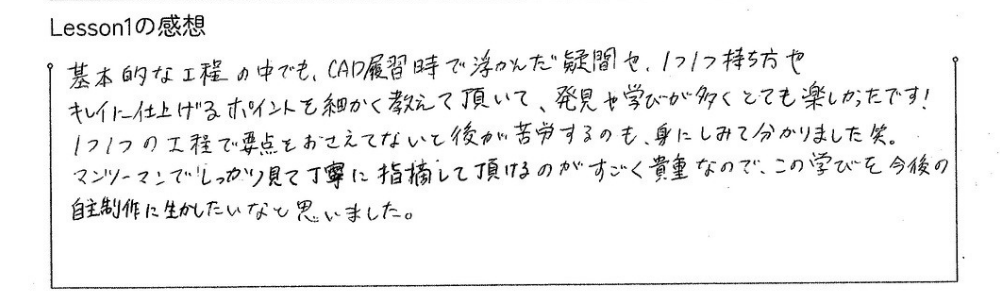 Lesson1の感想
基本的な工程の中でも、CAD履習時で浮かんだ疑問や、1つ1つ持ち方や
キレイに仕上げるポイントを細かく教えて頂いて、発見や学びが多くとても楽しかったです!
1つ1つの工程で要点をおさえてないと後が苦労するのも、身にしみて分かりました笑。
マンツーマンでしっかり見て丁寧に指摘して頂けるのがすごく貴重なので、この学びを今後の
自主制作に生かしたいなと思いました。